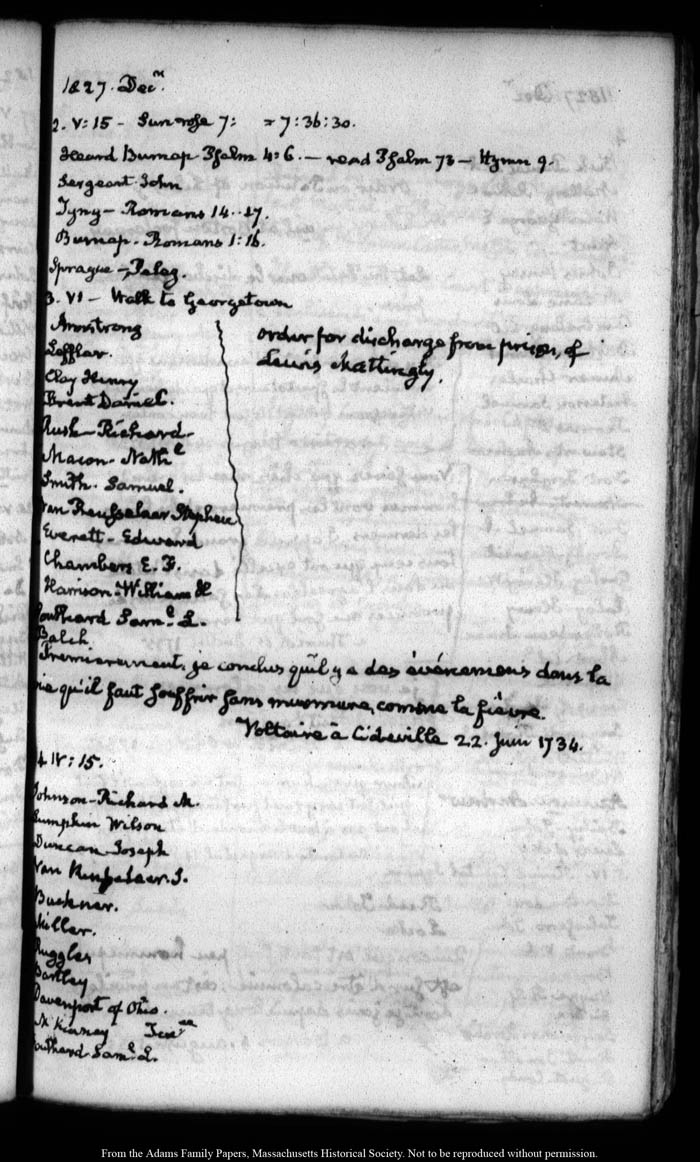 1827. Decr.
2. V: 15 - Sun rose 7: = 7:36:30.
Heard Burnap Psalm 4:6. — read Psalm 73 — Hymn 9.
Sergeant John
Tyng - Romans 14..17.
Burnap - Romans 1:16.
Sprague - Peleg.
3. VI - Walk to Georgetown
Armstrong
Order for discharge from prison, of
Lewis Mattingly.
Loffler.
Clay Henry
Brent Daniel.
Rush - Richard -
Macon - Nathl
Smith - Samuel.
Van Rensselaer Stephen
Everett - Edward
Chambers E. F.
Harrison - William H
Southard Saml. L.
Balch
Premierement, je conclus qu'il y a des événemens dans la
vie qu'il faut souffrir sans murmure, comme la fièvre.
Voltaire à Cideville 22. Juin 1734.
4. IV: 15.
Johnson - Richard M
Lumpkin Wilson
Duncan Joseph
Van Rensselaer. S.
Buckner.
Miller.
Ruggles
Bartley
Davenport of Ohio.
McKinney
Southard Saml. L.
From the Adams Family Papers, Massachusetts Historical Society. Not to be reproduced without permission.